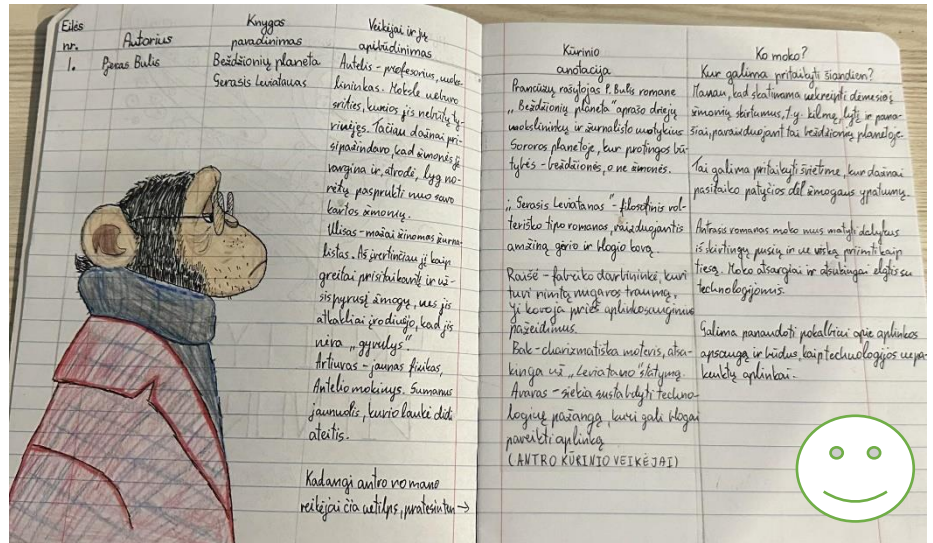 Eilės
nr.
Autorius
Knygos
pavadinimas
Veikėjai ir jų
apibūdinimas
1. Pjeras Bulis
Beždžionių planeta
Gerasis Leviatanas
Antelis - profesorius, moks-
lininkas. Moksle nebuvo
srities, kurios jis nebūtų ty-
rinėjęs. Tačiau dažnai pri-
sipažindavo, kad žmonės jį
vargina ir, atrodė, lyg no-
rėtų pasprukti nuo savo
kartos žmonių.
Ulisas - mažai žinomas žurna-
listas. Aš įvertinčiau jį kaip
greitai prisitaikantį ir už-
sispyrusį žmogų, nes jis
atkakliai įrodinėjo, kad jis
nėra „gyvulys".
Artiuras - jaunas fizikas,
Antelio mokinys. Sumanus
jaunuolis, kurio laukė didi
ateitis.
Kadangi antro romano
veikėjai čia netilps, pratęsiu ten →
Kūrinio
anotacija
Prancūzų rašytojas P. Bulis romane
„Beždžionių planeta" aprašo dviejų
mokslininkų ir žurnalisto nuotykius
Sororos planetoje, kur protingos bū-
tybės - beždžionės, o ne žmonės.
„Gerasis Leviatanas" - filosofinis vol-
teriško tipo romanas, vaizduojantis
amžiną gėrio ir blogio kovą.
Raišė - fabriko darbininkė, kuri
turi rimtą nugaros traumą,
ji kovoja prieš aplinkosauginius
pažeidimus.
Bak - charizmatiška moteris, atsa-
kinga už „Leviatano" statymą.
Avaras - siekia sustabdyti techno-
loginę pažangą, kuri gali blogai
paveikti aplinką
(ANTRO KŪRINIO VEIKĖJAI)
Ko moko?
Kur galima pritaikyti šiandien?
Manau, kad skatinama nekreipti dėmesio į
žmonių skirtumus, t.y. kilmę, lytį ir pana-
šiai, pavaizduojant tai beždžionių planetoje.
Tai galima pritaikyti švietime, kur dažnai
pasitaiko patyčios dėl žmogaus ypatumų.
Antrasis romanas moko mus matyti dalykus
iš skirtingų pusių ir ne viską priimti kaip
tiesą. Moko atsargiai ir atsakingai elgtis su
technologijomis.
Galima panaudoti pokalbiui apie aplinkos
apsaugą ir būdus, kaip technologijos nepa-
kenktų aplinkai.